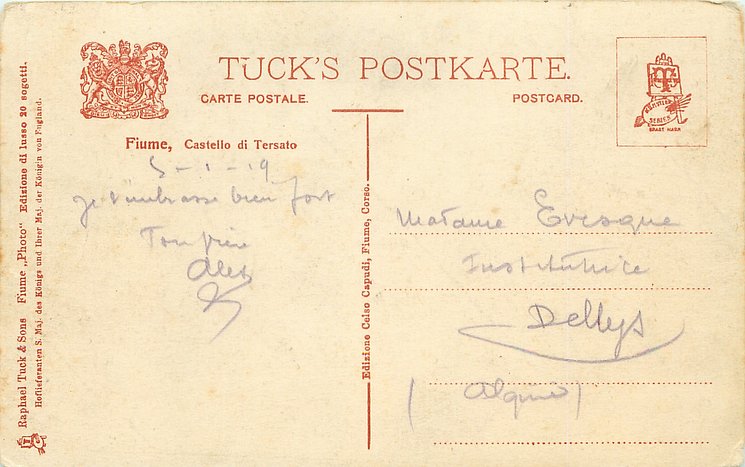 TUCK'S POSTKARTE.
CARTE POSTALE.
POSTCARD.
Fiume, Castello di Tersato
5-1-19
Je t'embrasse bien fort
Ton frère
Alex
Madame Evesque
Institutrice
Dellys
(Algérie)
Edizione Celso Capudi, Fiume, Corso.
Raphael Tuck & Sons Fiume „Photo" Edizione di lusso 20 sogetti.
Hoflieferanten S. Maj. des Königs und Ihrer Maj. der Königin von England.
SERIES